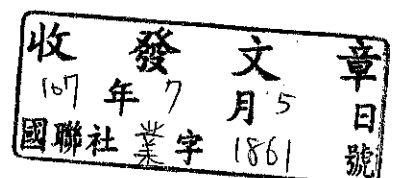 收發文章
107年7月5日
國聯社業字1861號